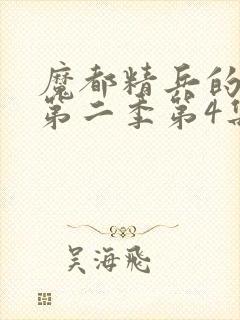 魔都精兵的
第二季第4集
吴海飛